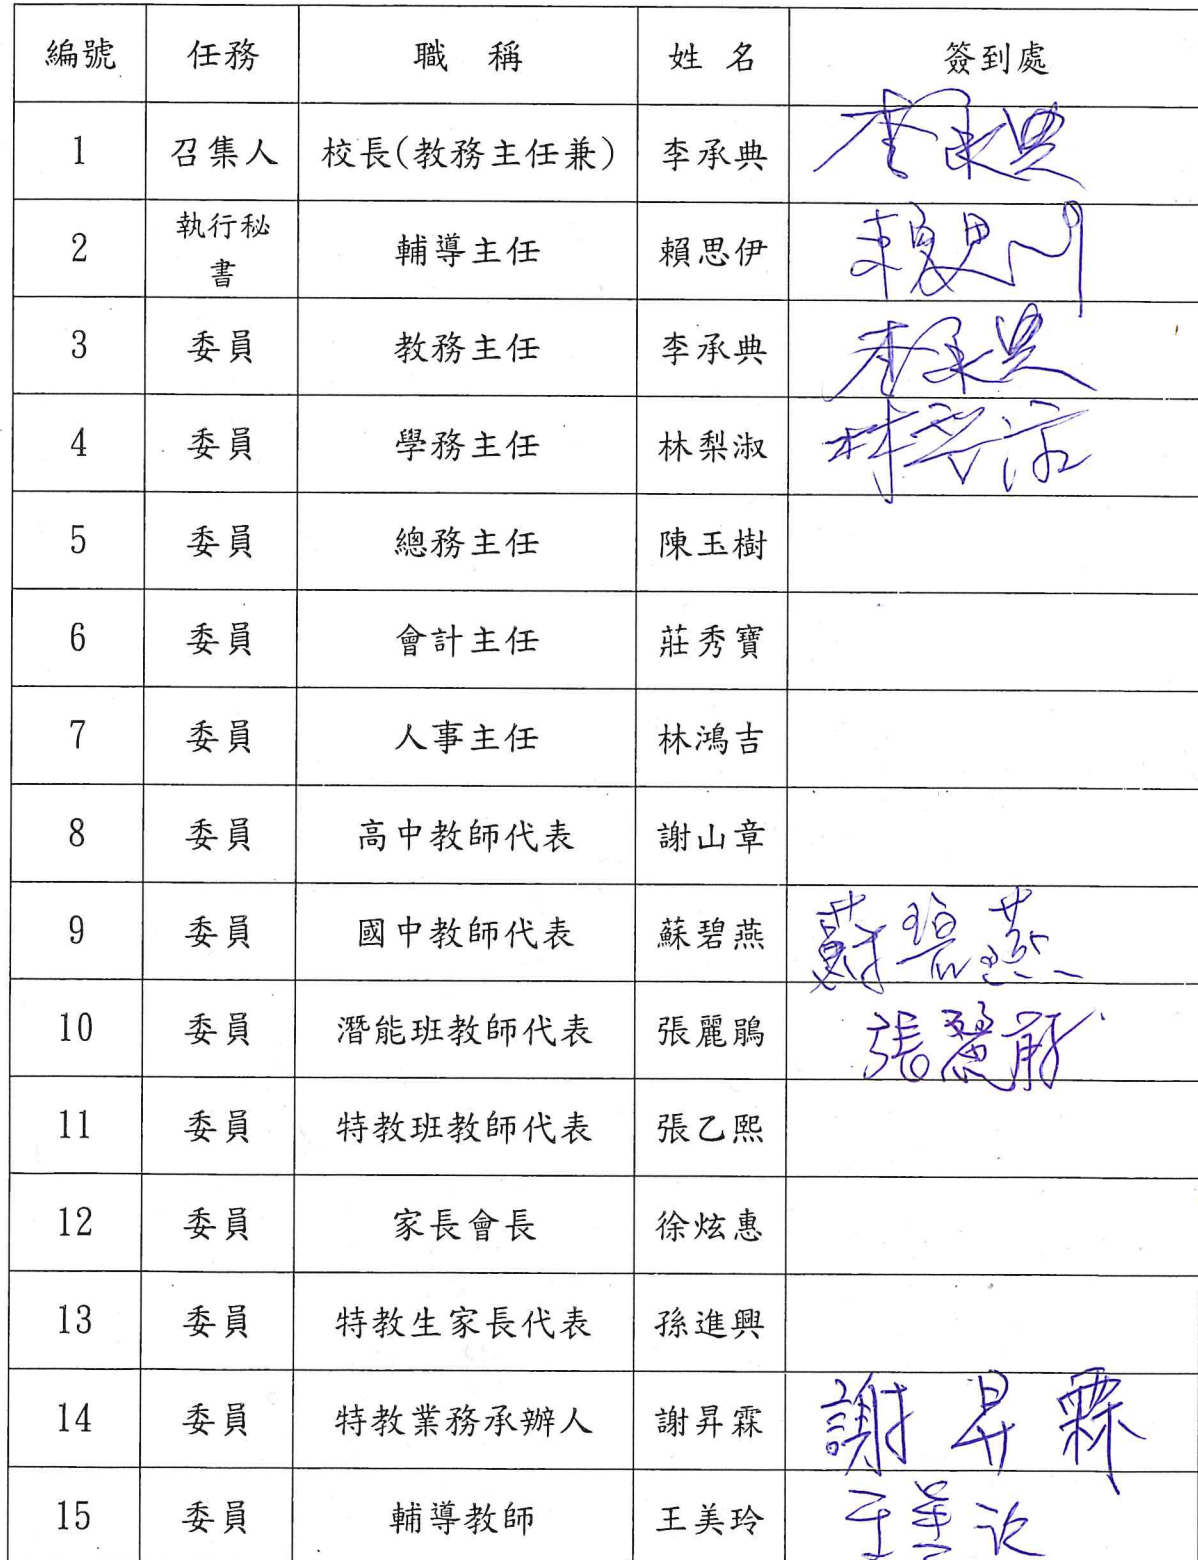 編號 任務 職 稱 姓 名 簽到處
1 召集人 校長(教務主任兼) 李承典 李承典
2 執行秘書 輔導主任 賴思伊 賴思伊
3 委員 教務主任 李承典 李承典
4 委員 學務主任 林梨淑 林梨淑
5 委員 總務主任 陳玉樹
6 委員 會計主任 莊秀寶
7 委員 人事主任 林鴻吉
8 委員 高中教師代表 謝山章
9 委員 國中教師代表 蘇碧燕 蘇碧燕
10 委員 潛能班教師代表 張麗鵑 張麗鵑
11 委員 特教班教師代表 張乙熙
12 委員 家長會長 徐炫惠
13 委員 特教生家長代表 孫進興
14 委員 特教業務承辦人 謝昇霖 謝昇霖
15 委員 輔導教師 王美玲 王美玲